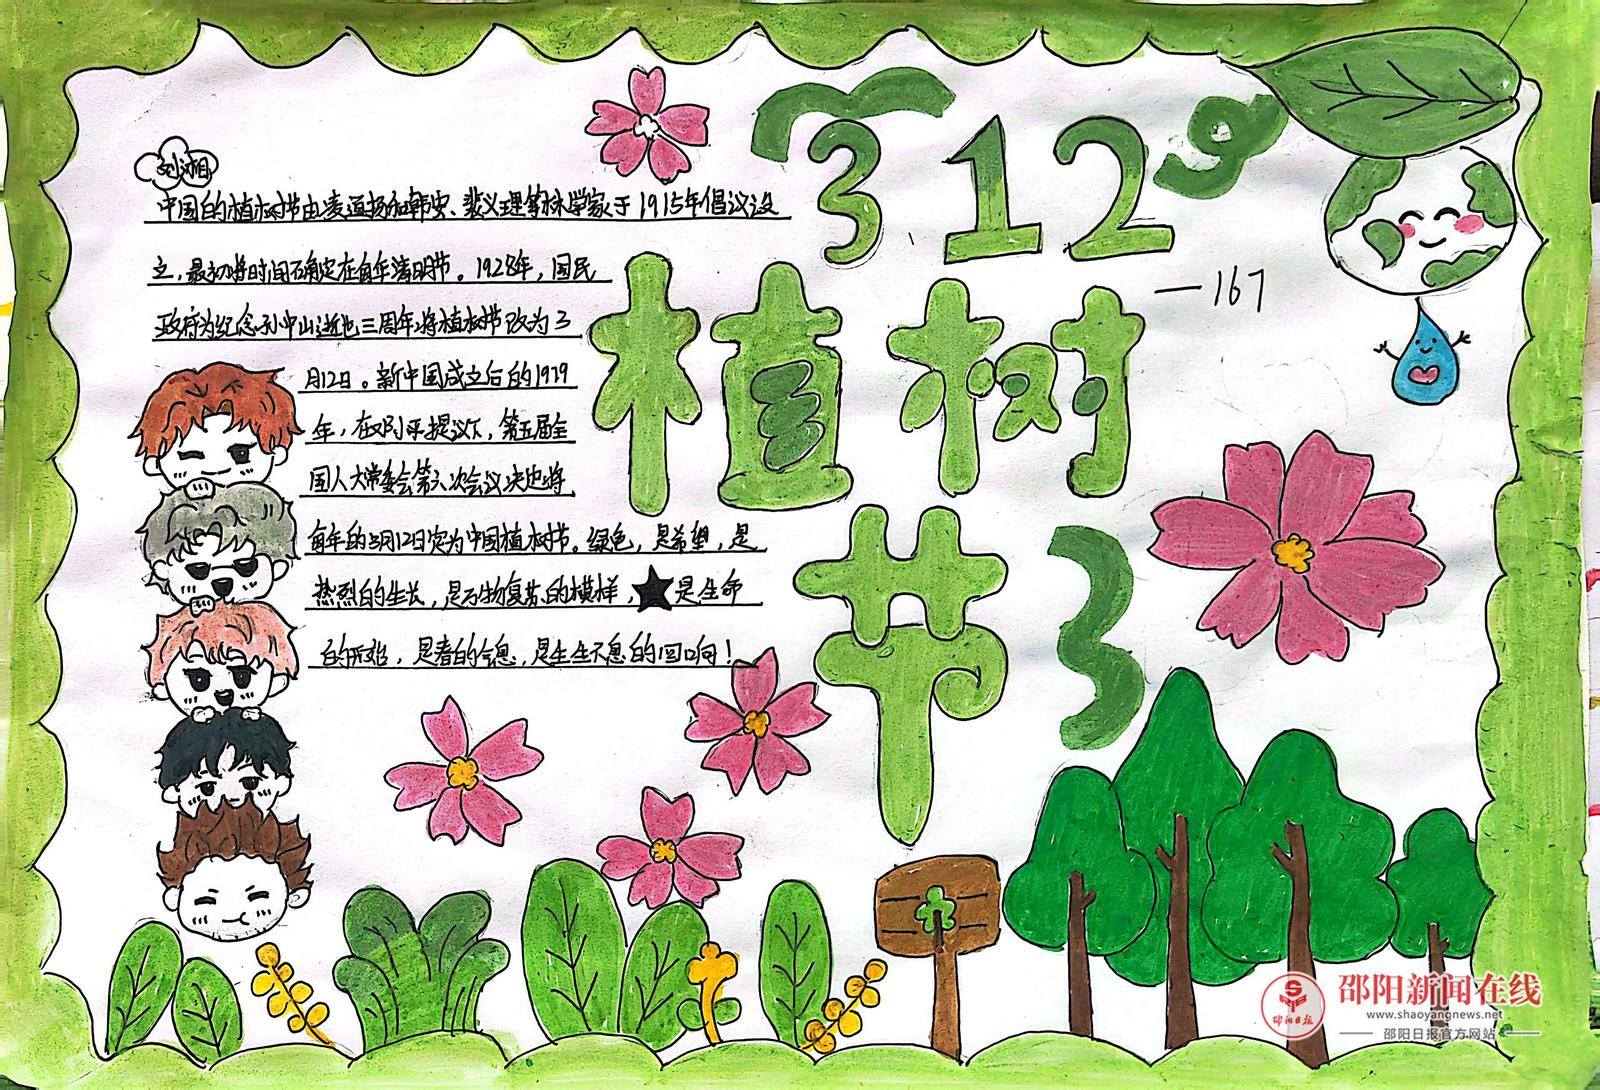 刘湘
312
—167
植树
节
中国的植树节由凌道扬和韩安、裴义理等林学家于1915年倡议设
立，最初将时间确定在每年清明节。1928年，国民
政府为纪念孙中山逝世三周年，将植树节改为3
月12日。新中国成立后的1979
年，在邓小平提议下，第五届全
国人大常委会第六次会议决定将
每年的3月12日定为中国植树节。绿色，是希望，是
热烈的生长，是万物复苏的模样，★是生命
的开始，是春的气息，是生生不息的回响！
邵阳日报
邵阳新闻在线
www.shaoyangnews.net
邵阳日报官方网站